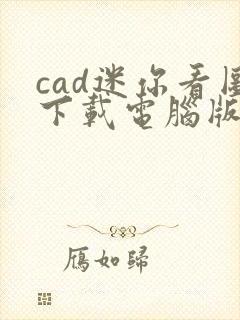 cad迷你看圖
下載電腦版
鴈如歸